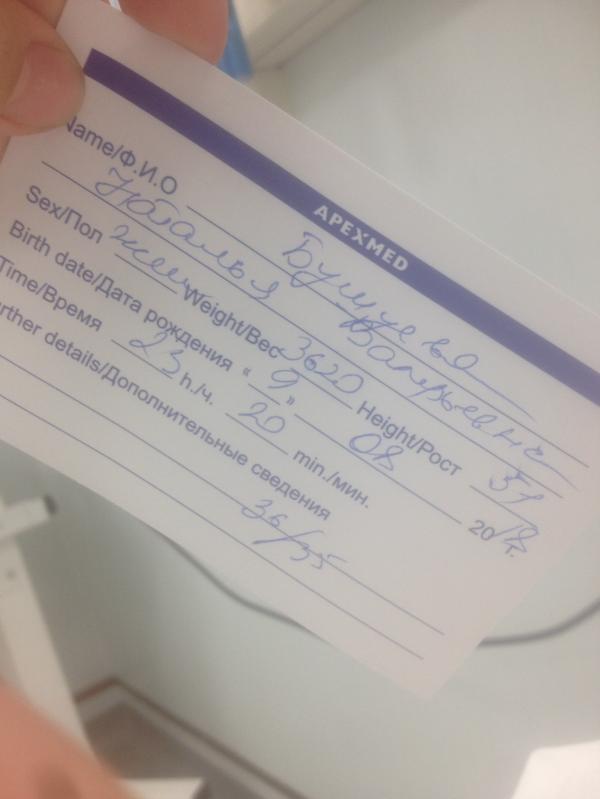 APEXMED
Name/Ф.И.О
Наталья Валерьевна
Sex/Пол жен Weight/Вес 3620 Height/Рост 51
Birth date/Дата рождения « 9 » 08 20 г.
Time/Время 23 h./ч. 20 min./мин.
rther details/Дополнительные сведения
36/35